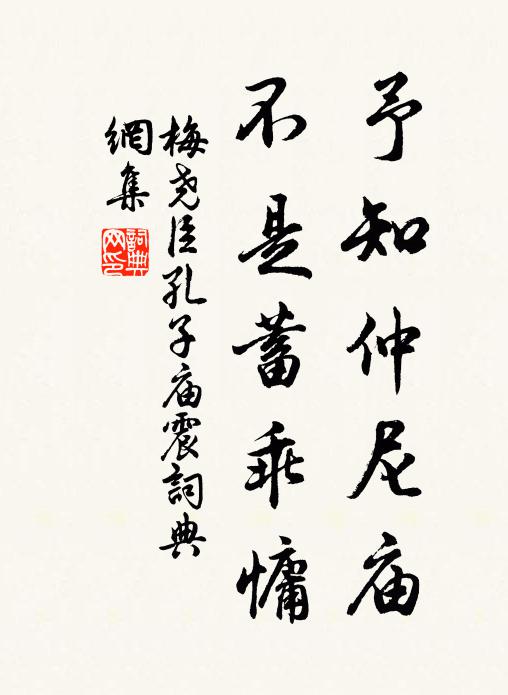 予知仲尼庙
不是蓄乖慵
梅尧臣孔子庙震詞典
網集
詞典网印